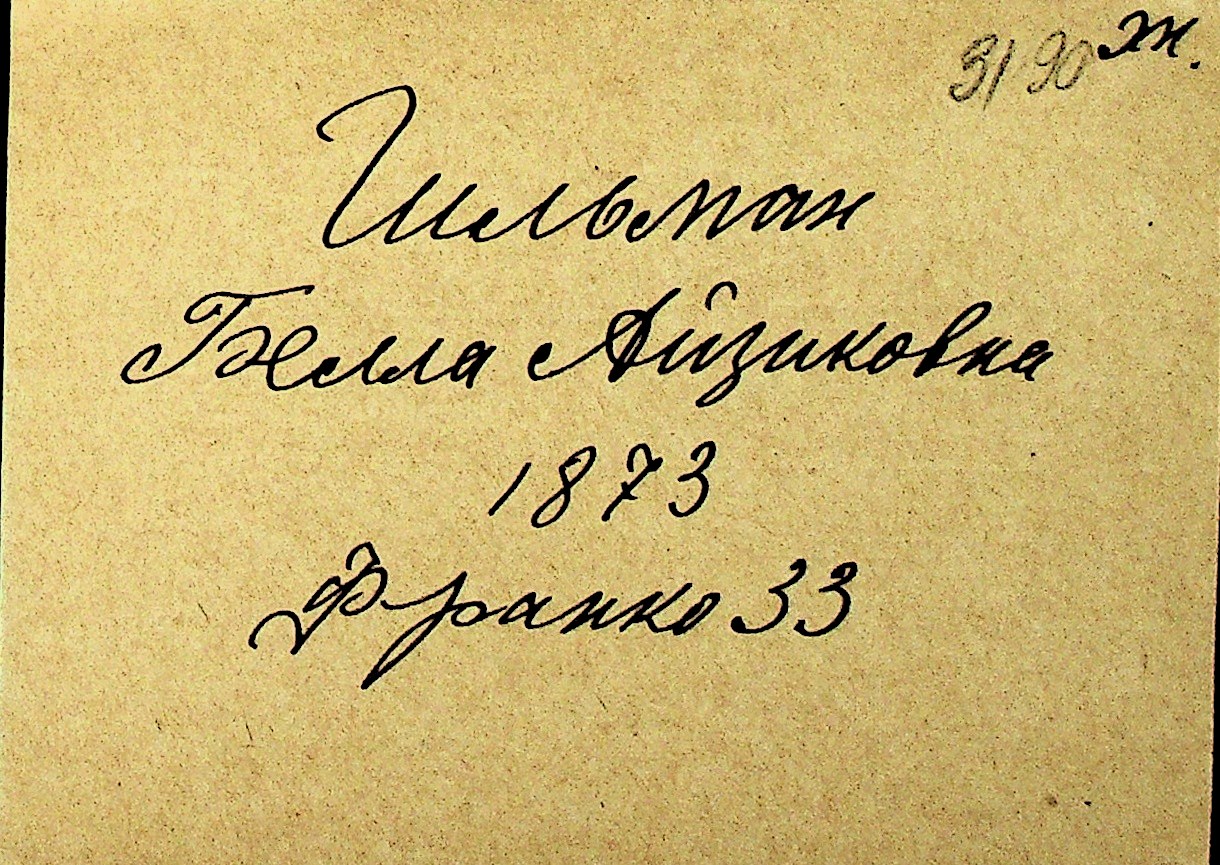 3190 ж.
Гильман
Бэлла Айзиковна
1873
Франко 33